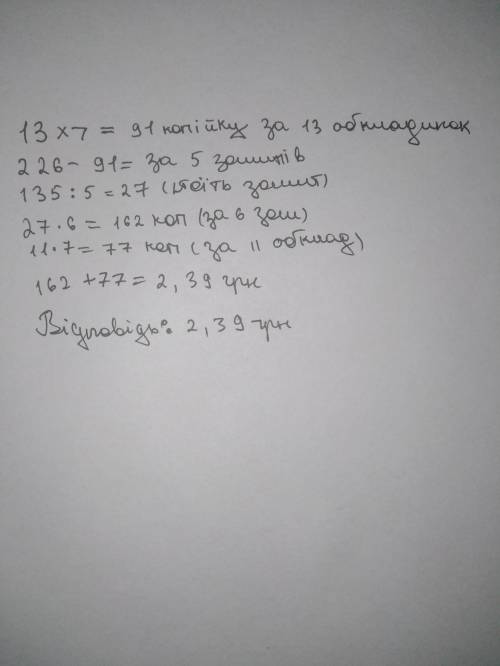 13 × 7 = 91 копійку за 13 обкладинок
226 - 91 = за 5 зошитів
135 : 5 = 27 (
27 · 6 = 162 коп (за 6 зош)
11 · 7 = 77 коп (за 11 обклад)
162 + 77 = 2,39 грн
Відповідь: 2,39 грн